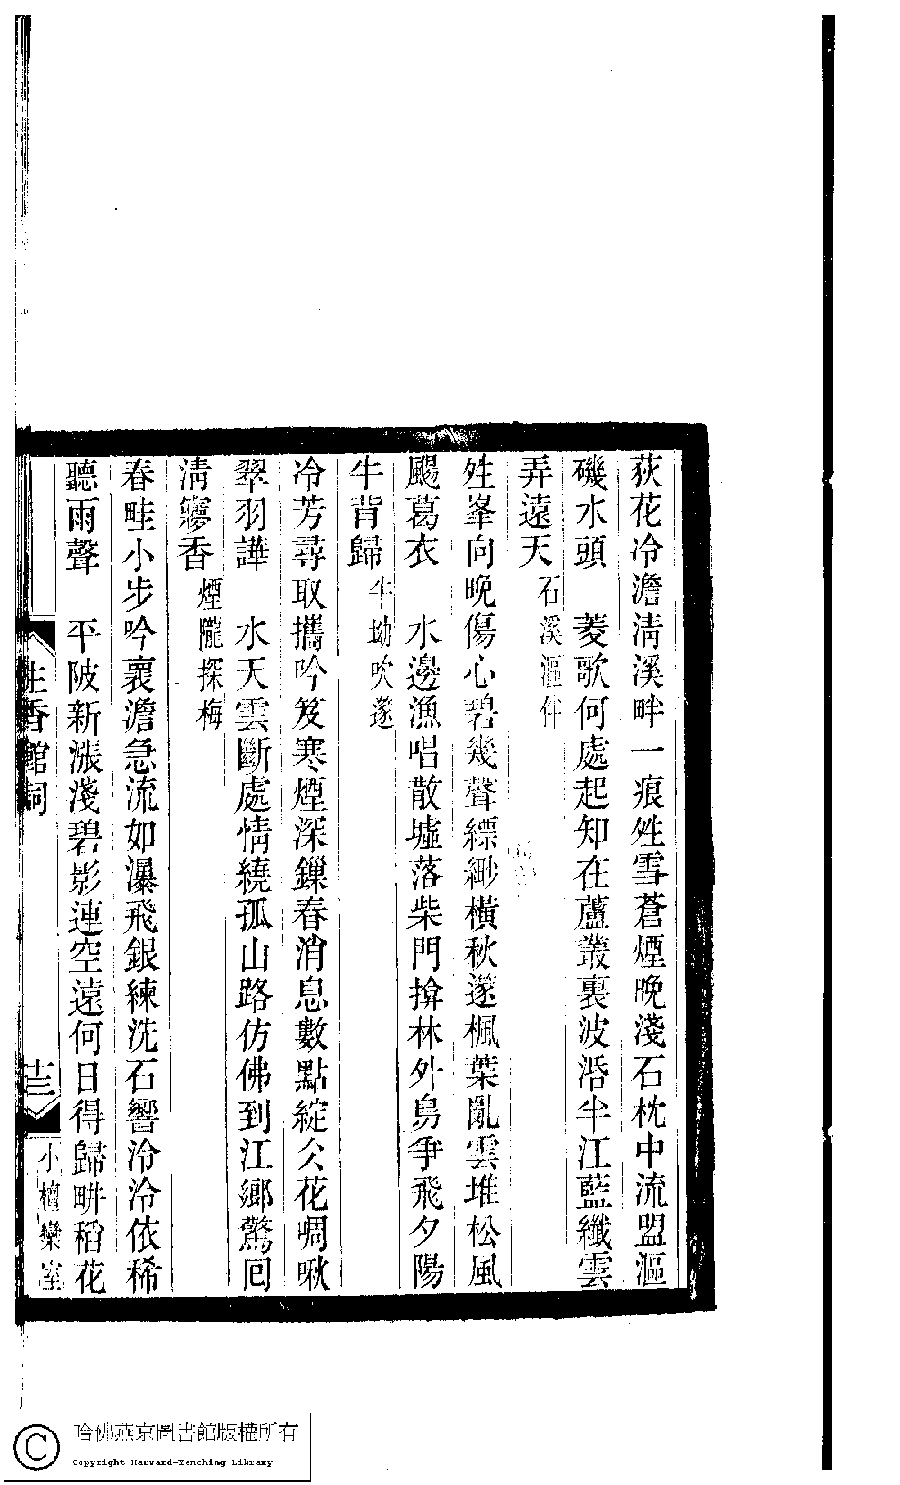 荻花冷澹清溪畔一痕甡雪蒼煙晚淺石枕中流盟漚
磯水頭　菱歌何處起知在蘆叢裏波浴半江藍纖雲
弄遠天石溪漚伴
甡峯向晚傷心碧幾聲縹緲橫秋篴楓葉亂雲堆松風
颺葛衣　水邊漁唱散墟落柴門揜林外舄爭飛夕陽
牛背歸牛坳吹篴
冷芳尋取攜吟笈寒煙深鏁春消息數點綻仌花啁啾
翠羽譁　水天雲斷處情繞孤山路仿佛到江鄉驚回
清寥香煙隴探梅
春畦小步吟裏澹急流如瀑飛銀練洗石響泠泠依稀
聽雨聲　平陂新漲淺碧影連空遠何日得歸畊稻花
生香館詞
十三
小檀欒室
哈佛燕京圖書館版權所有
Copyright Harvard-Yenching Library